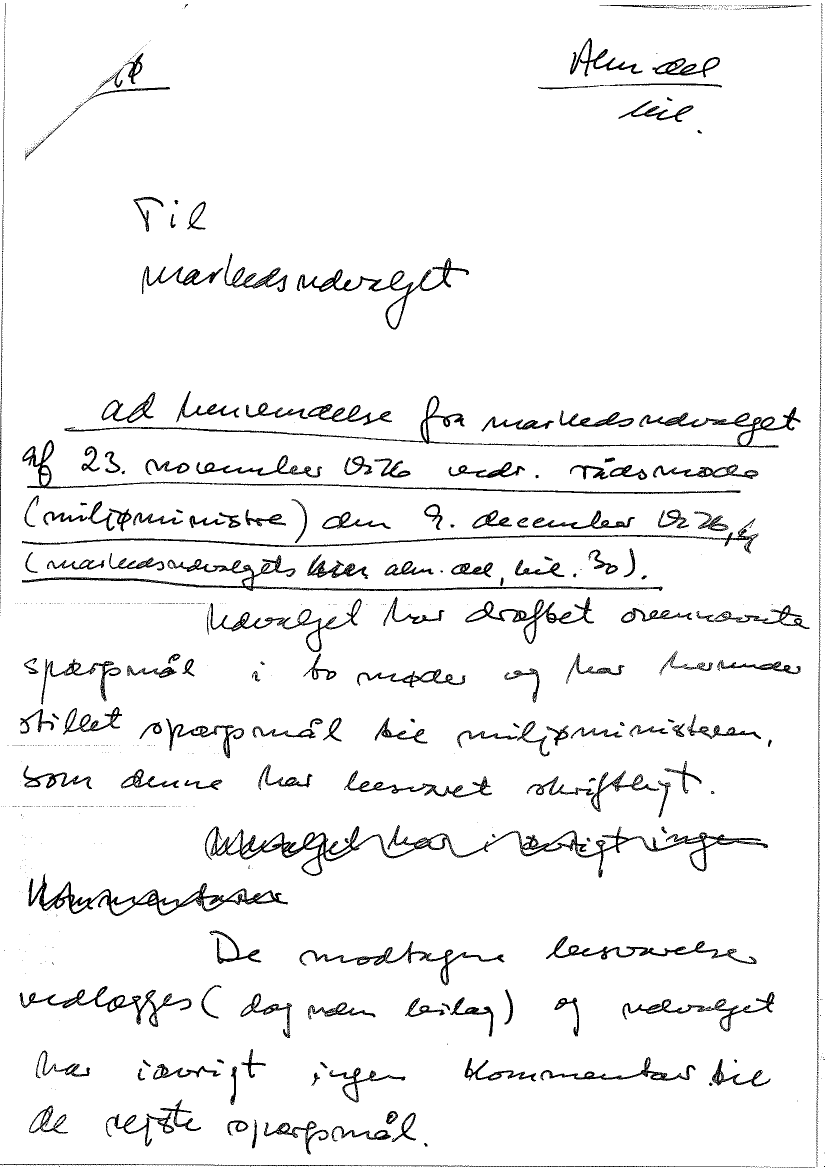 Alm. del
bil.
Til
markedsudvalget
ad henvendelse fra markedsudvalget
af 23. november 1976 vedr. rådsmøde
(miljøministre) den 9. december 1976,
(markedsudvalgets alm. del, bil. 30).
Udvalget har drøftet ovennævnte
spørgsmål i to møder og har herunder
stillet spørgsmål til miljøministeren,
som denne har besvaret skriftligt.
Udvalget har i øvrigt ingen
kommentarer
De modtagne besvarelser
vedlægges (dog uden bilag) og udvalget
har iøvrigt ingen kommentar til
de rejste spørgsmål.